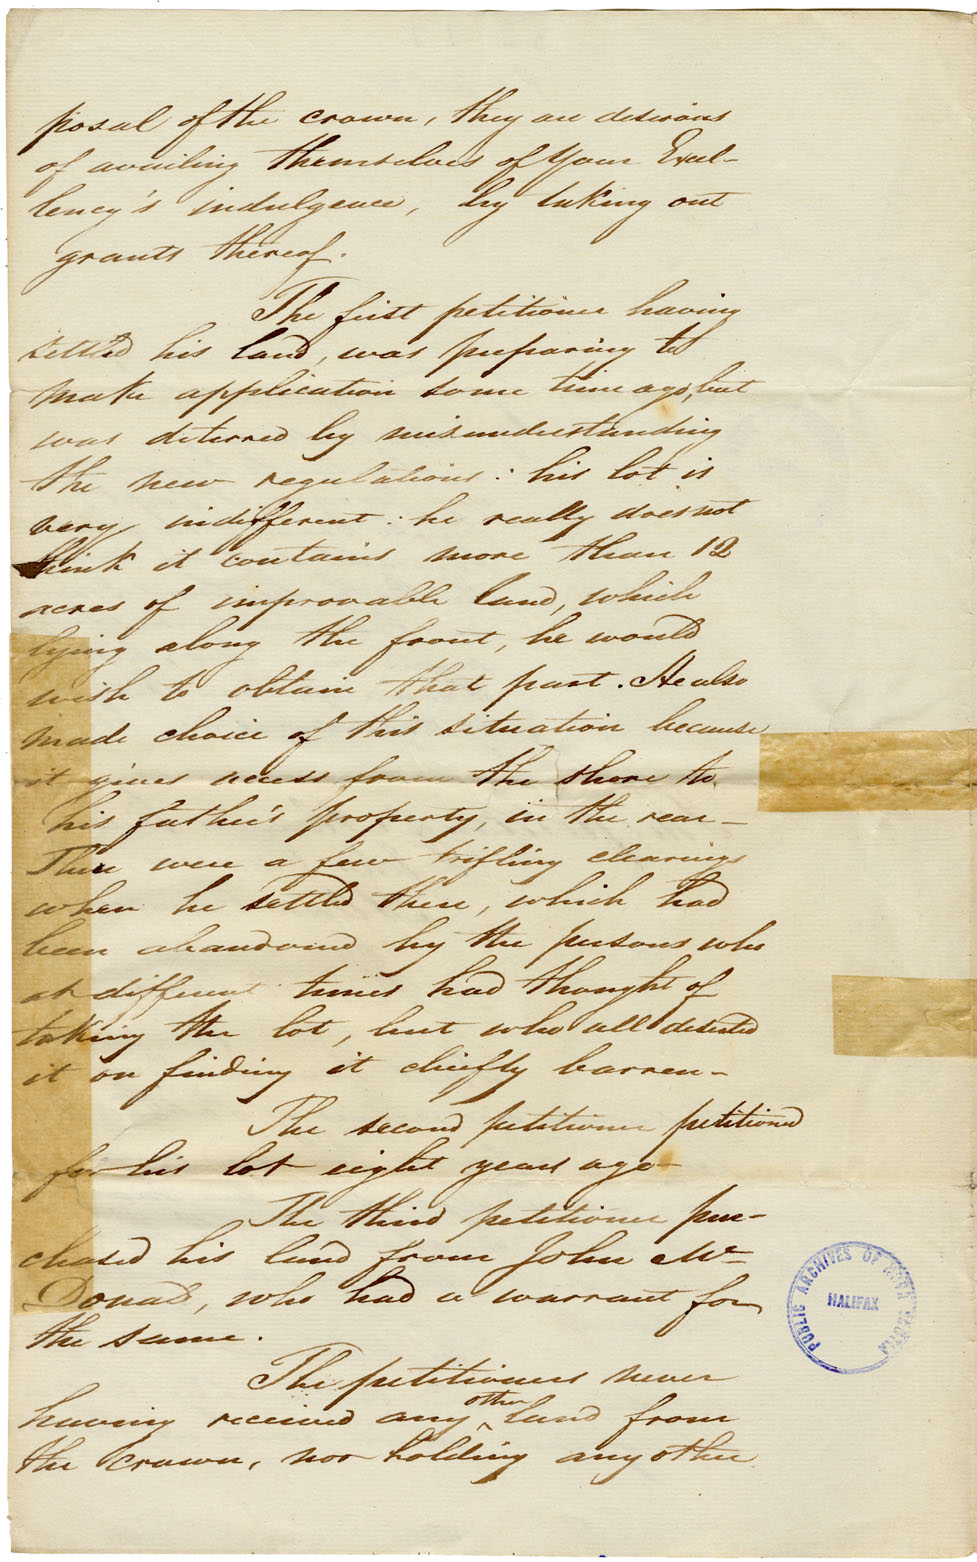 posal of the crown, they are desirous
of availing themselves of Your Excel-
lency's indulgence, by taking out
grants thereof.
The first petitioner having
settled his land, was preparing to
make application some time ago, but
was deterred by misunderstanding
the new regulations: his lot is
very indifferent: he really does not
think it contains more than 12
acres of improvable land, which
lying along the front, he would
wish to obtain that part. He also
made choice of this situation because
it gives access from the shore to
his father's property, in the rear—
There were a few trifling clearings
when he settled there, which had
been abandoned by the persons who
at different times had thought of
taking the lot, but who all deserted
it on finding it chiefly barren—
The second petitioner petitioned
for his lot eight years ago—
The third petitioner pur-
chased his land from John Mc-
Donad, who had a warrant for
the same.
The petitioners never
having received any other land from
the crown, nor holding any other
PUBLIC ARCHIVES OF NOVA SCOTIA
HALIFAX